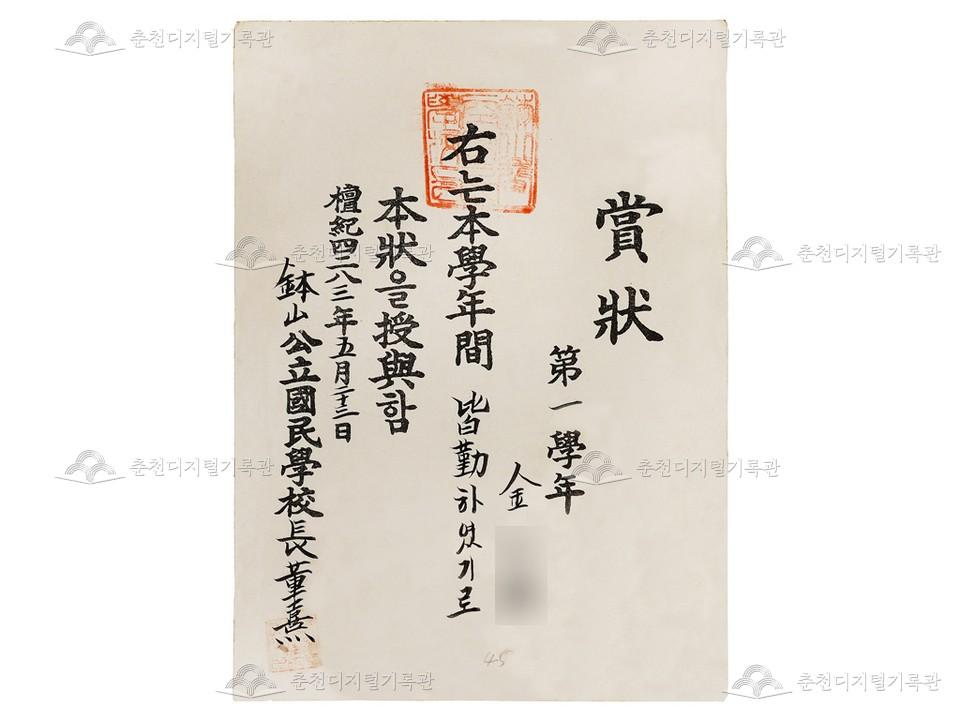 賞狀
第一學年
金
右는本學年間 皆勤하였기로
本狀을授與함
檀紀四二八三年五月二十三日
鉢山公立國民學校長董熹
45
춘천디지털기록관
춘천디지털기록관
춘천디지털기록관
춘천디지털기록관
춘천디지털기록관
춘천디지털기록관
춘천디지털기록관
춘천디지털기록관